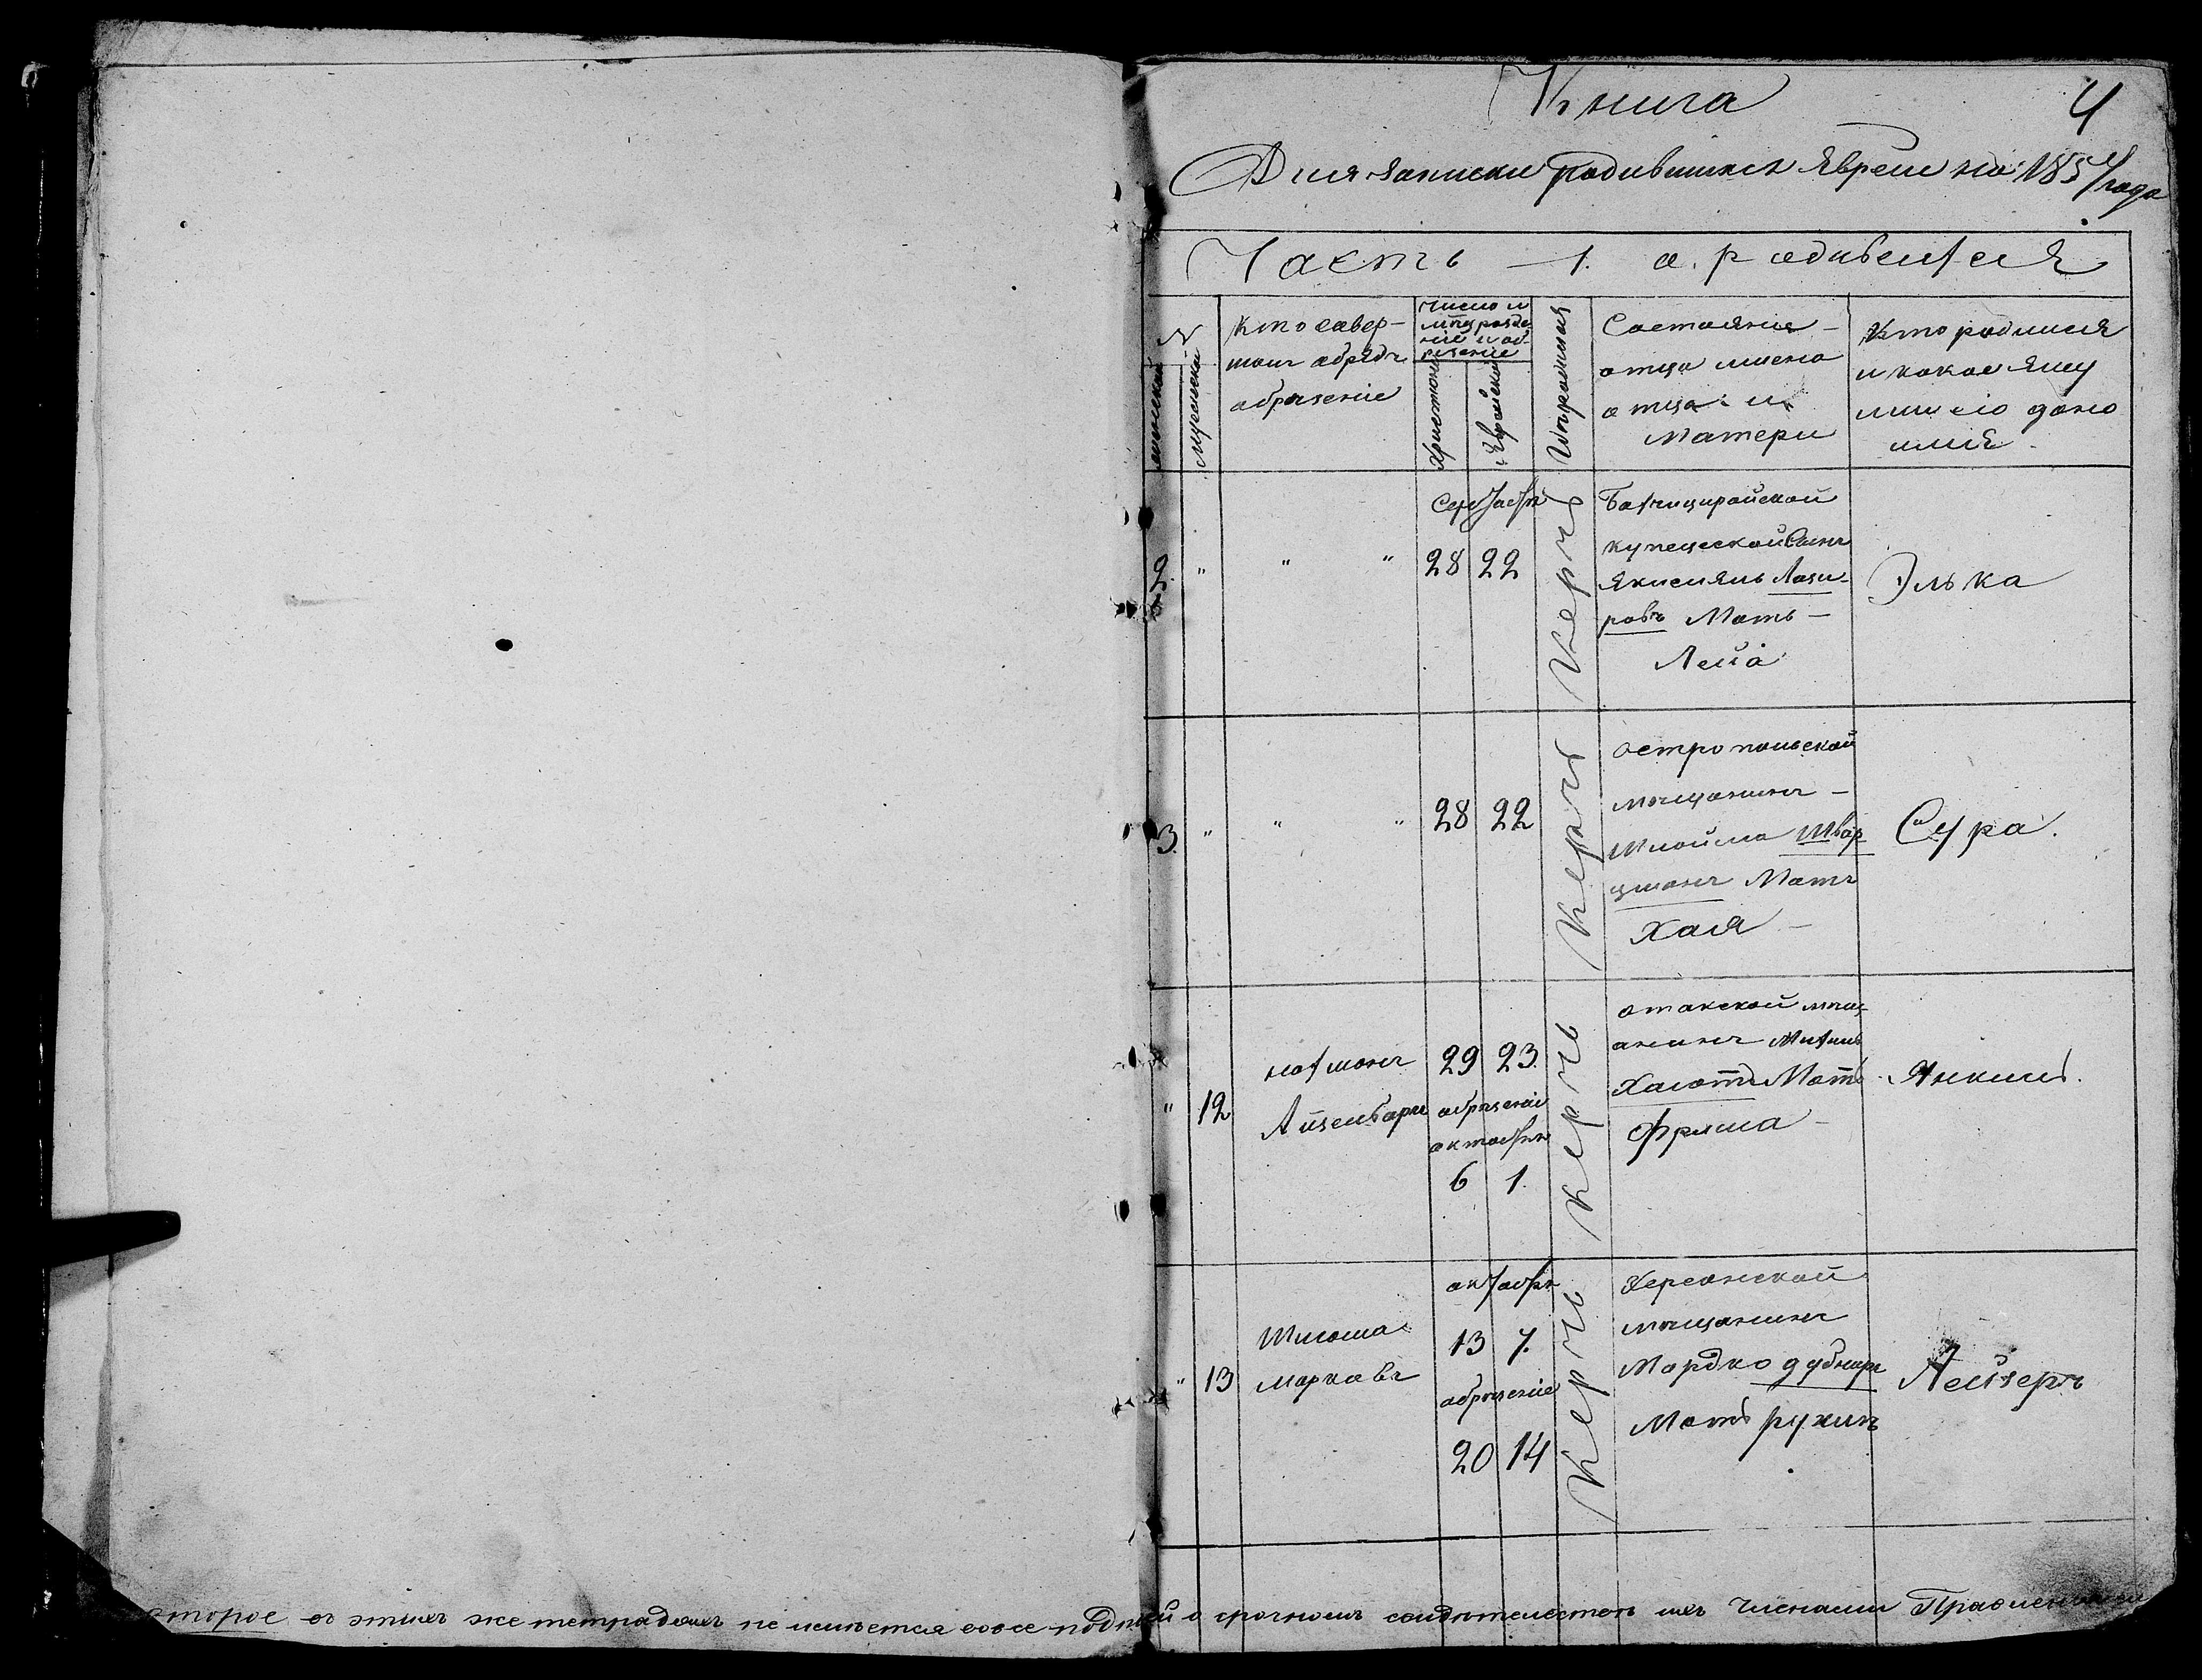 Книга
4
Для записки родившихся Явреи на 1854 года
Часть — 1. о родившихся
№
женской
мужеской
кто совер-
шал обряд
обрезание
число и
мѣц рожде-
ние и об-
резание
Христиан
Яврейской
Где родился
Состояние
отца имена
отца и
Матери
Кто родился
и какое яму
или ей дано
имя
2. " " "
Сентября
28 22
Керчь
Бахчисарайской
купеческой Сынъ
Якисиель Лази-
ровъ Мать —
Лея
Элька
3. " " "
28 22
Керчь
остропольской
мещанинъ —
Шлойма Швар
цманъ Мать
Хая —
Сура.
" 12
нахманъ
Айзенбаръ
29 23.
обрезание
октября
6 1.
Керчь
отакской мещ-
анинъ Михель
Хаютъ Мать
Фрима —
Янкиль.
" 13
Шлиома
марковъ
октября
13 7.
обрезание
20 14
Керчь
Херсонской
мещанинъ
Мордко дубниръ
Мать рухль
Лейзеръ
второе въ этихъ же тетрадяхъ не имѣется вовсе о срочномъ свидѣтельствѣ ихъ Членами Правленія